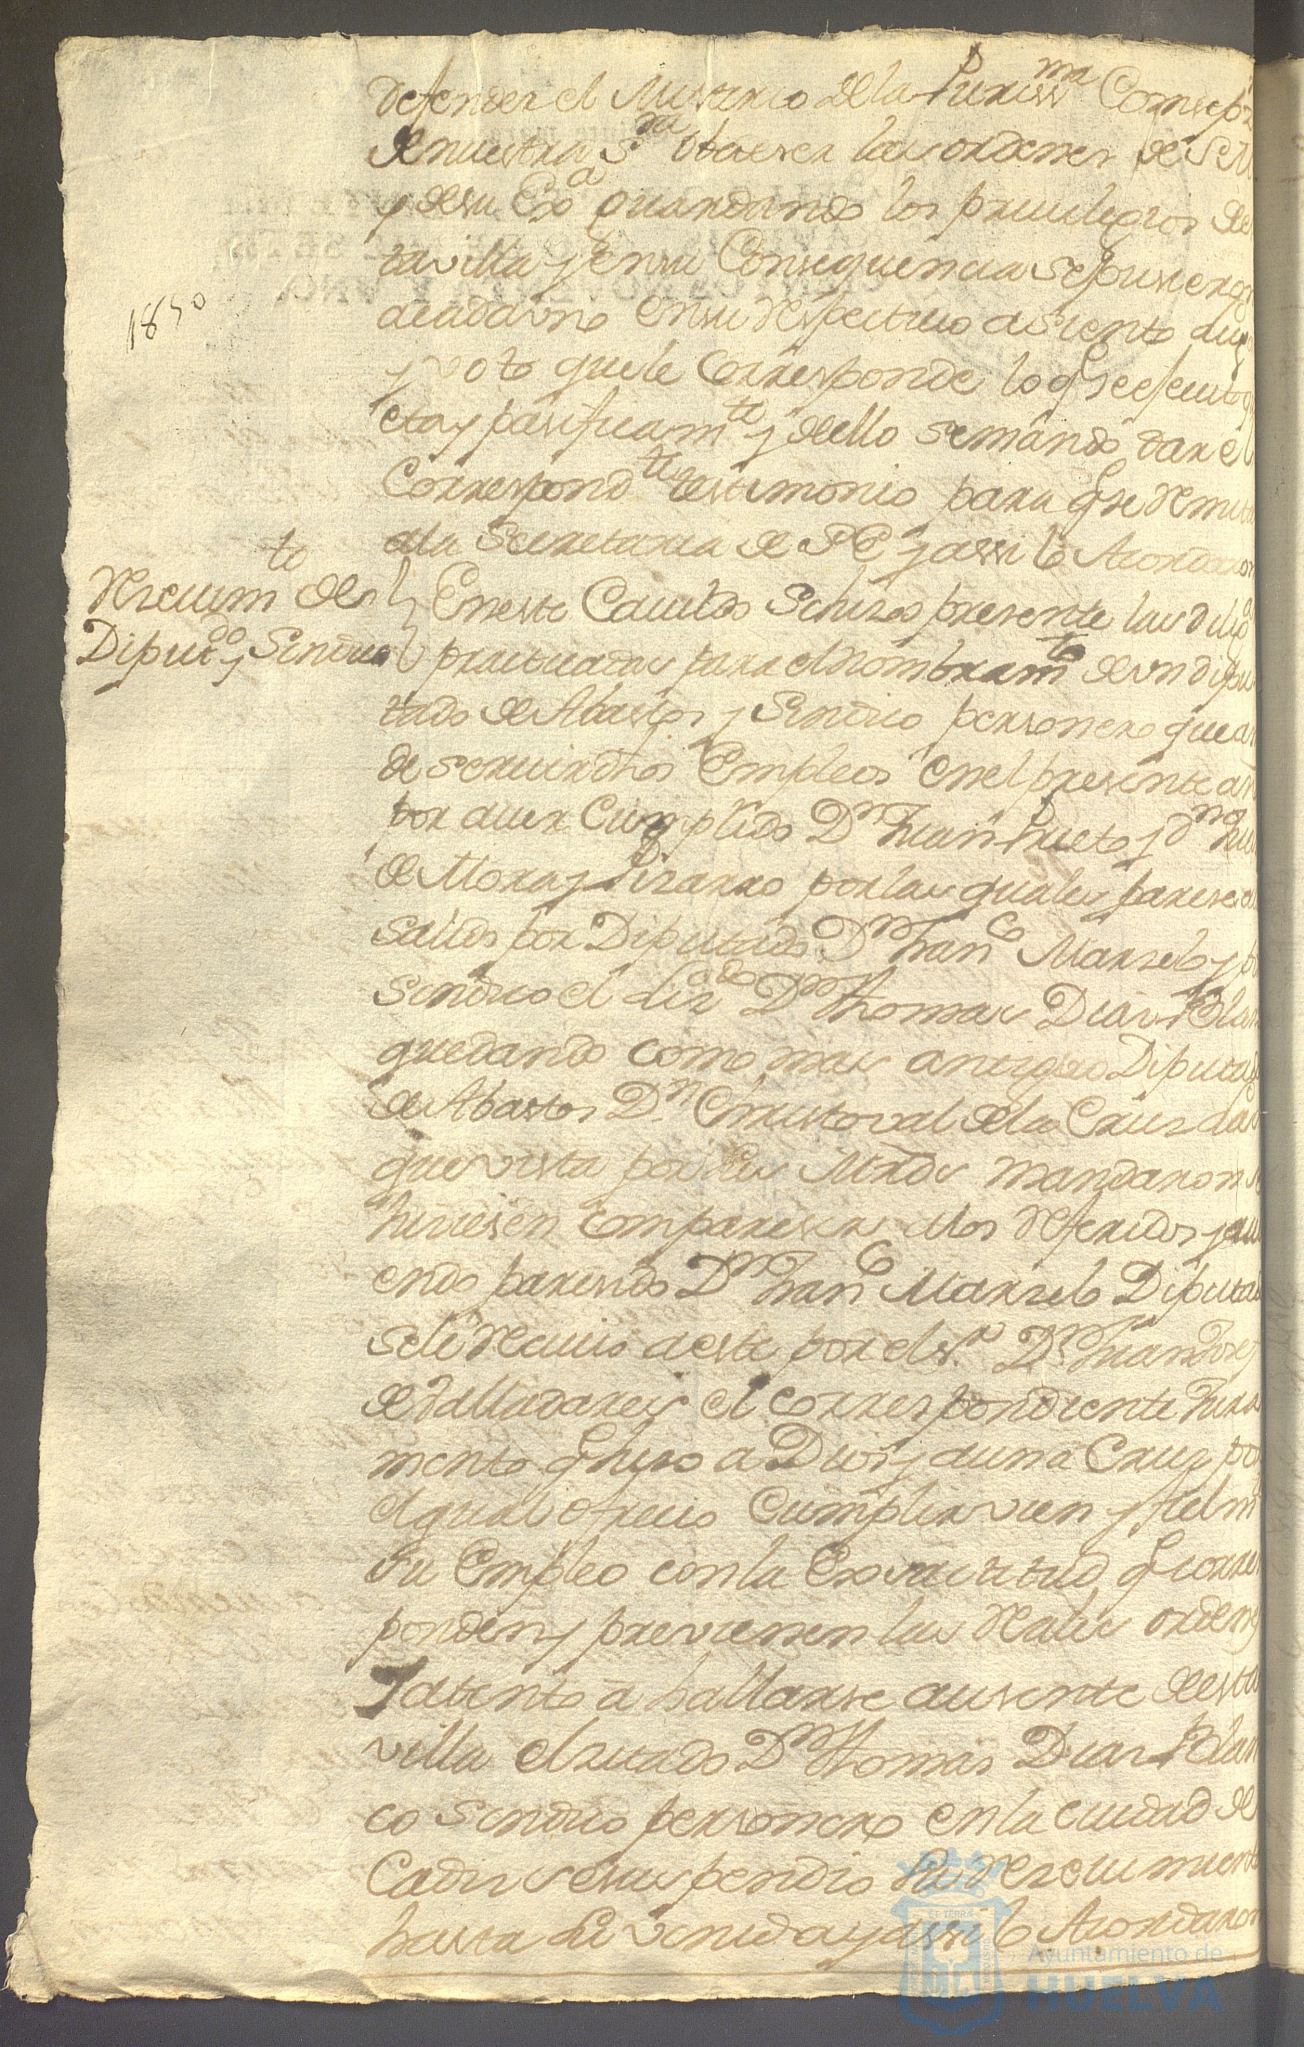 defender el Misterio de la Puriss.ma Consep.n
de nuestra S.ra obdeser las ordenes de S. M.
y de su Ex.a guardando los privilegios de es
ta villa y en su Consequencia se pusieron
a cada uno en su respectivo asiento
y voto que le corresponde lo q.e se ejecuto qui
eta y pasificam.te y de ello se mando dar el
Correspond.te testimonio para q.e se remita
a la Secretaria de S E y assi lo Acordaron
1850
Resevim.to de
Diput.do y Sindico
En este Cavildo se hizo presente las dilig.as
practicadas para el nombram.to de un dipu
tado de Abastos y Sindico personero que an
de servir dhos Empleos en el presente año
por aver Cumplido D.n Juan Prieto y D.n
de Mora y Pizarro por las quales parese
salido por Diputado D.n Fran.co Marzelo y p.r
Sindico el Liz.do D.n Thomas Dias Blan
quedando como mas antiguo Diputado
de Abastos D.n Christoval de la Cruz
que vista por sus Mrds mandaron se
hiziesen compareser a los referidos y avi
endo paresido D.n Fran.co Marzelo Diputa
se le recivio a este por el S.r D.n Juan Josef
de Valladares el correspondiente Jura
mento q.e hizo a Dios y a una Cruz por
el qual ofrecio Cumplir vien y fielm.
su Empleo con la Exsactitud q.e corres
ponden y previenen las Reales ordenes
Y atento a hallarse ausente de esta
villa el zitado D.n Thomas Dias Blan
co Sindico personero en la ciudad de
Cadiz se suspendio su resevimiento
hasta su venida y assi lo Acordaron
Ayuntamiento de
HUELVA